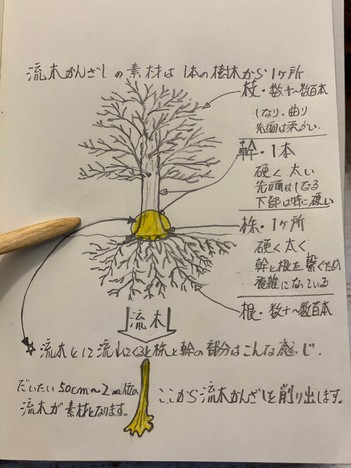 流木かんざしの素材は1本の樹木から1ヶ所
枝・数十〜数百本
しなり・曲り
先端は柔かい
幹・1本
硬く太い
先端はしなる
下部は特に硬い
株・1ヶ所
硬く太く、
幹と根を繋ぐため
複雑になっている
根・数十〜数百本
流木
☆流木として流れてくると株と幹の部分はこんな感じ.
だいたい50cm〜2m位の
流木が素材となります。
ここから流木かんざしを削り出します。